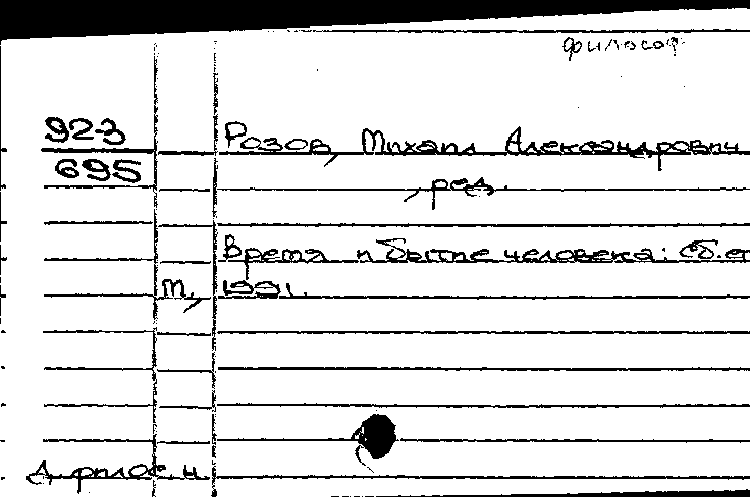 философ
92-3
695
Розов, Михаил Александрович
, ред.
Время и бытие человека: Сб. ст
М., 1991.
Д. филос. н.